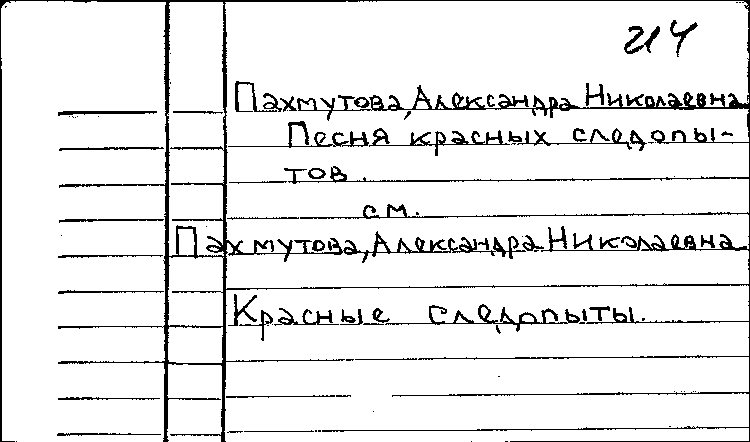 214
Пахмутова, Александра Николаевна
Песня красных следопы-
тов.
см.
Пахмутова, Александра Николаевна
Красные следопыты.